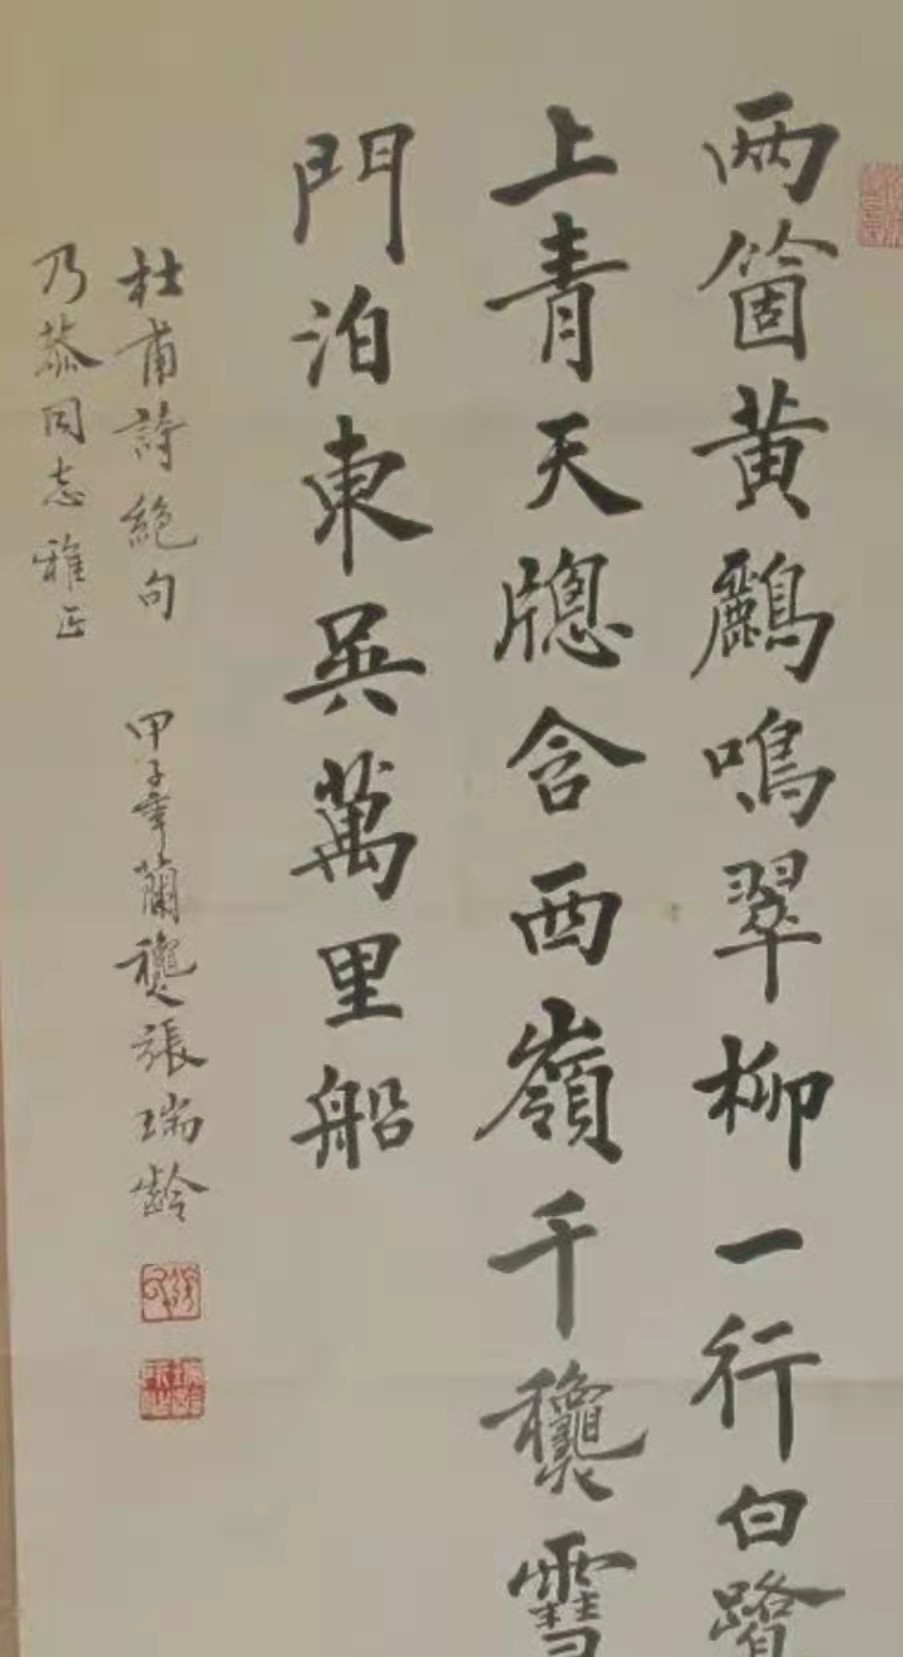 两箇黄鸝鳴翠柳一行白鷺
上青天牕含西嶺千龝雪
門泊東吳萬里船
杜甫詩絕句 甲子年蘭龝張瑞齡
乃恭同志雅正